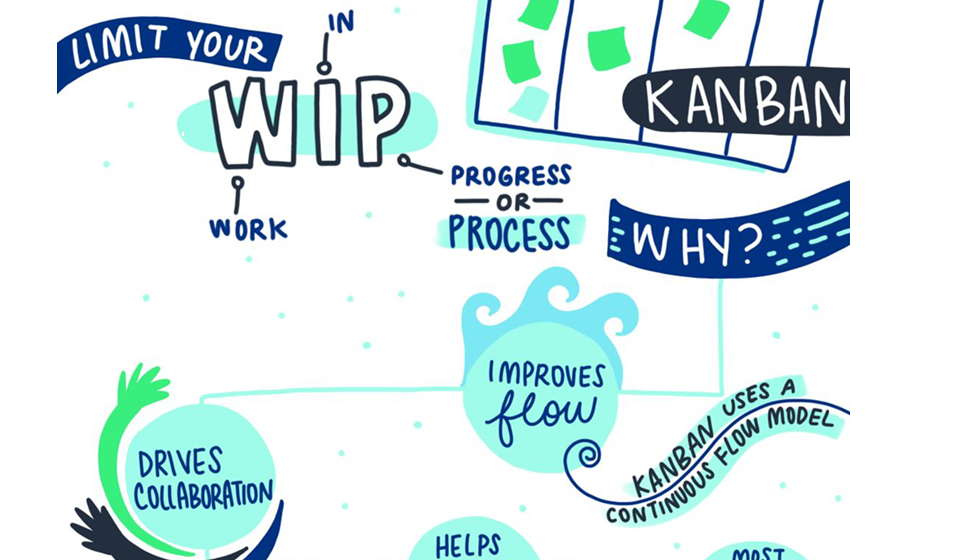 LIMIT YOUR
IN
WIP
WORK
PROGRESS
OR
PROCESS
KANBAN
WHY?
IMPROVES
flow
KANBAN USES A
CONTINUOUS FLOW MODEL
DRIVES
COLLABORATION
HELPS
MOST